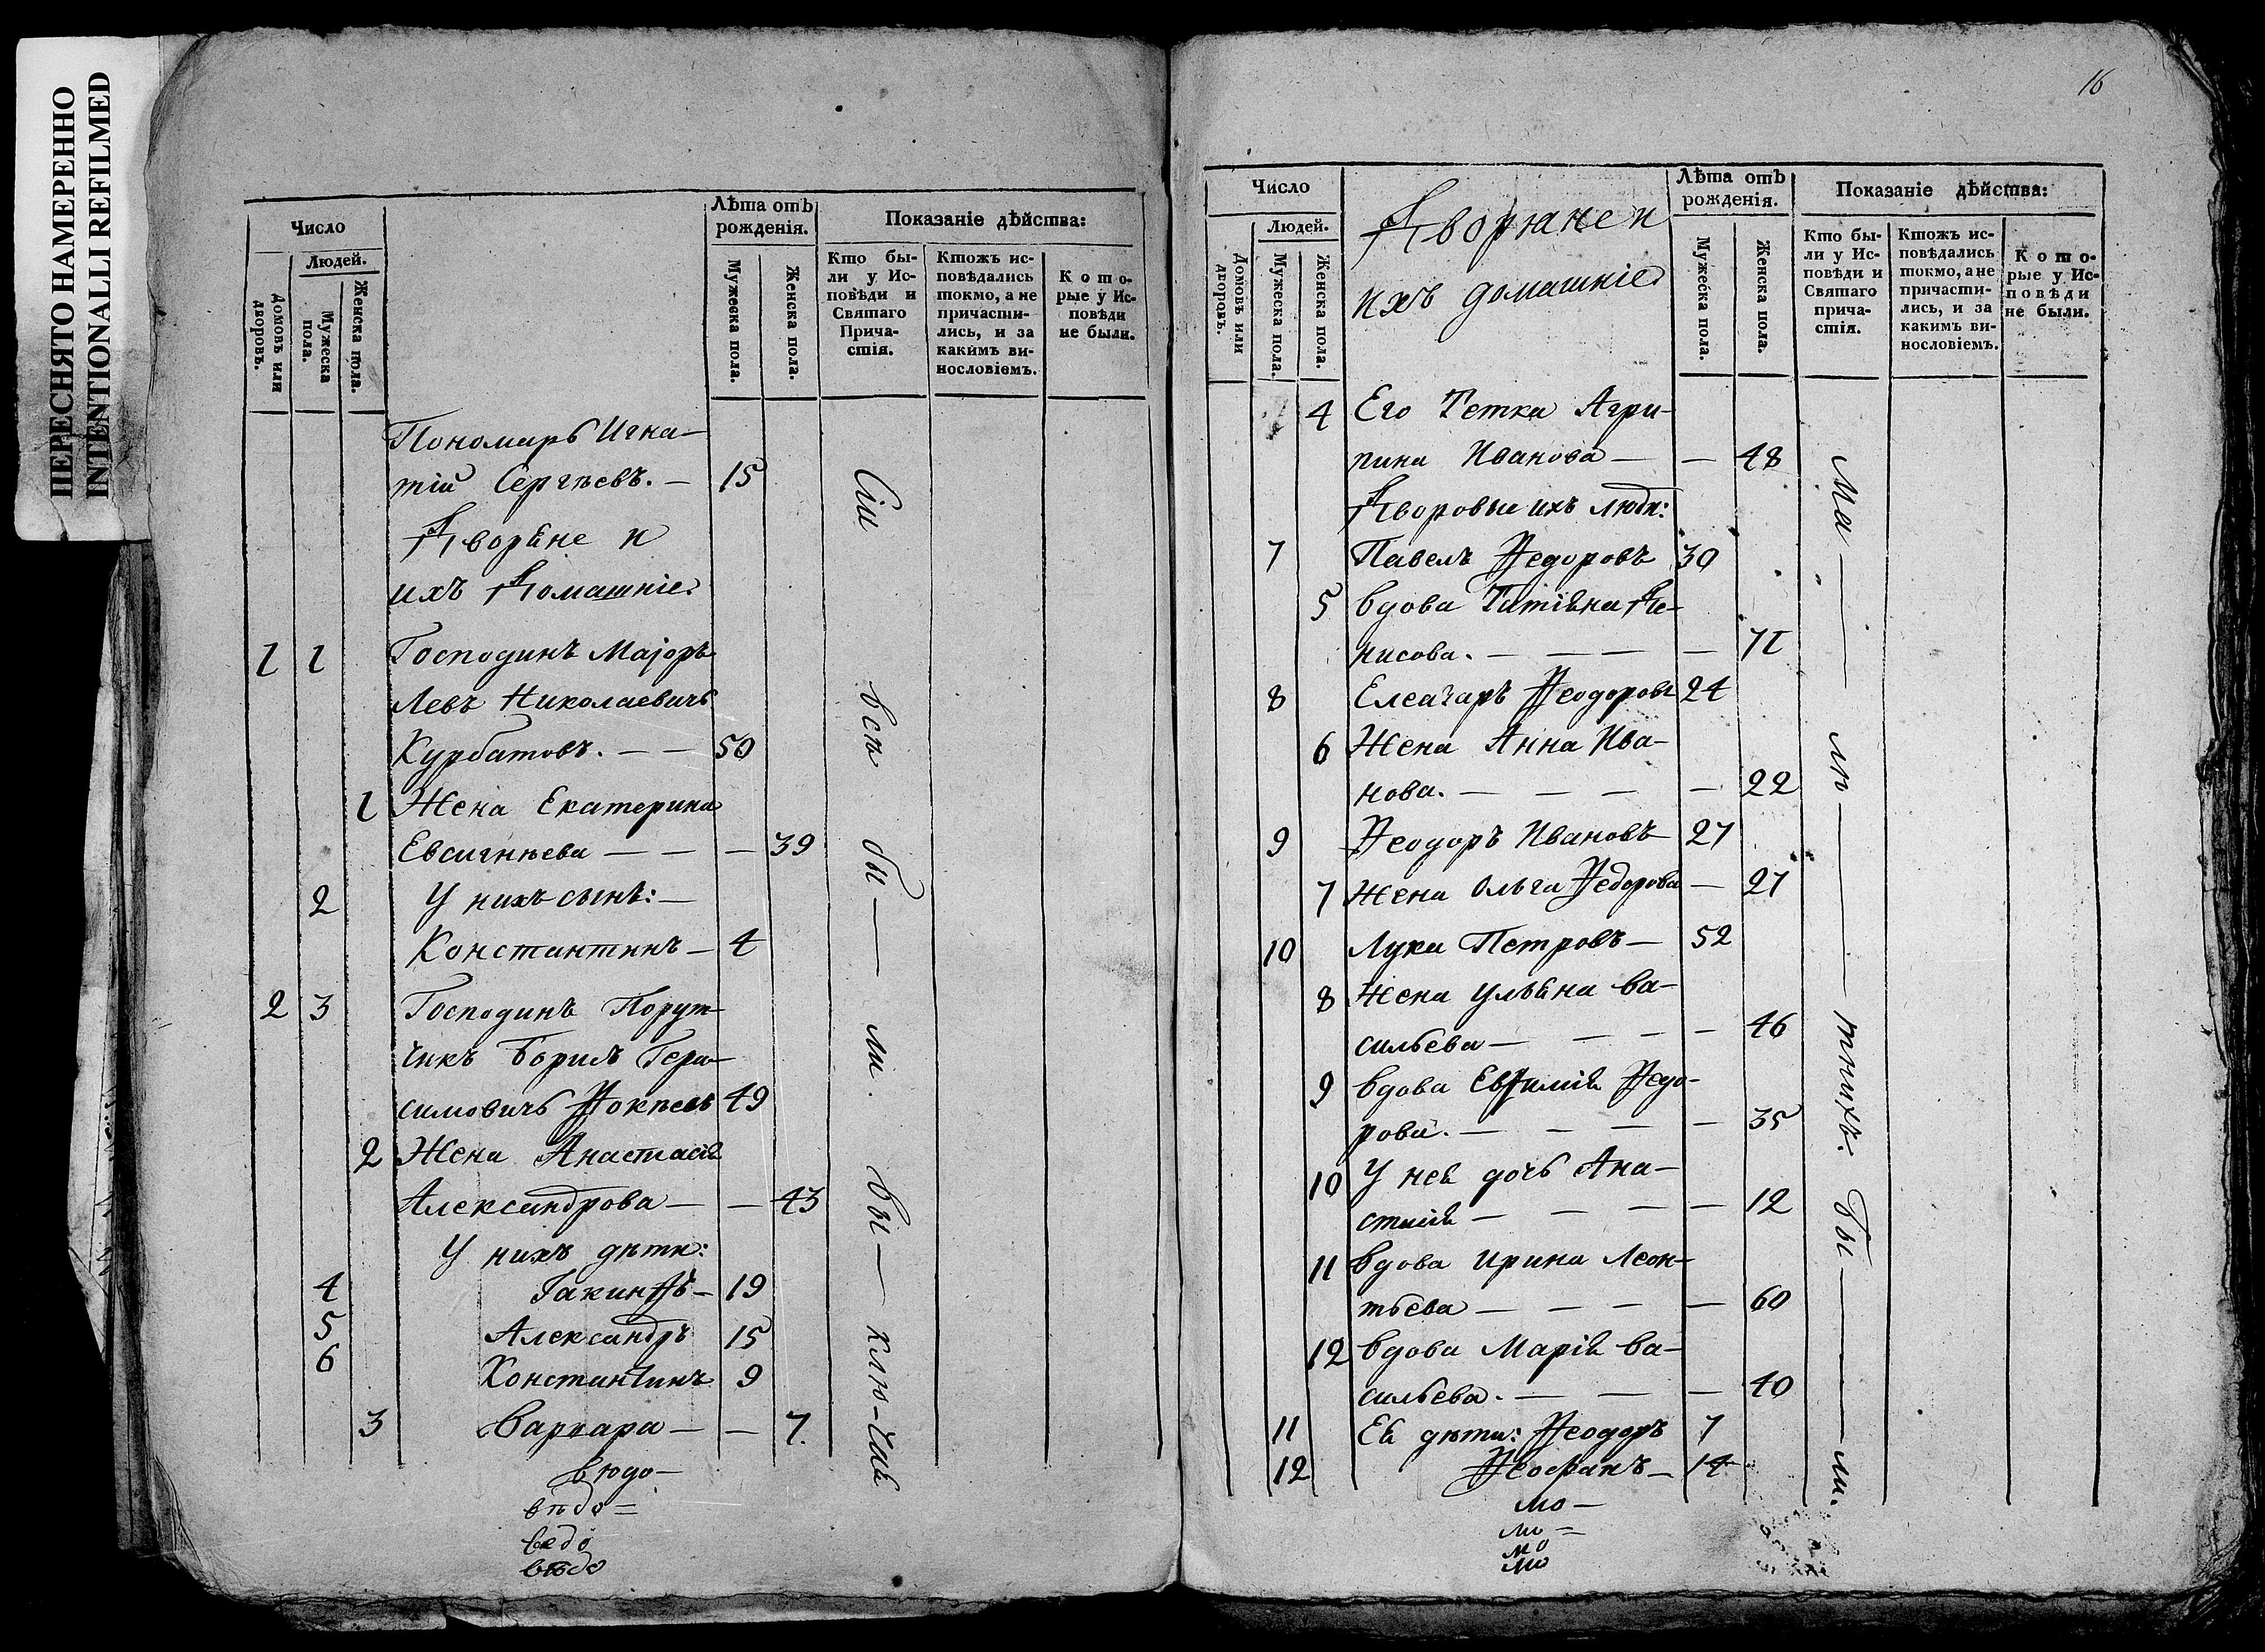 ПЕРЕСНЯТО НАМЕРЕННО
INTENTIONALLI REFILMED
Число
Людей.
Домовъ или дворовъ.
Мужеска пола.
Женска пола.
Лѣта отъ рожденія.
Мужеска пола.
Женска пола.
Показаніе дѣйства:
Кто бы-
ли у Ис-
повѣди и
Святаго
Прича-
стія.
Ктожъ ис-
повѣдались
токмо, а не
причасти-
лись, и за
какимъ ви-
нословіемъ.
Кото-
рые у Ис-
повѣди
не были.
Пономарь Игна-
тій Сергѣевъ. — 15
Дворяне и
ихъ Домашніе.
1 1 Господинъ Маіоръ
Левъ Николаевичъ
Курбатовъ. — — 50
1 Жена Екатерина
Евсигнѣева — — — 39
2 У нихъ сынъ: —
Константинъ — 4
2 3 Господинъ Порут-
чикъ Борисъ Гера-
симовичъ Ѳокѣевъ 49
2 Жена Анастасія
Александрова — — 43
У нихъ дѣти:
4 Іакинѳъ — 19
5 Александръ 15
6 Константинъ 9
3 Варвара — — 7.
Сіи всѣ бы — ли. Вы — клю-чая
вѣдо =
ведо
вѣдо
16
Число
Людей.
Домовъ или дворовъ.
Мужеска пола.
Женска пола.
Дворяне и
ихъ домашніе
Лѣта отъ рожденія.
Мужеска пола.
Женска пола.
Показаніе дѣйства:
Кто бы-
ли у Ис-
повѣди и
Святаго
прича-
стія.
Ктожъ ис-
повѣдались
токмо, а не
причасти-
лись, и за
какимъ ви-
нословіемъ.
Кото-
рые у Ис-
повѣди
не были.
4 Его Тетка Агри-
пина Иванова — — 48
Дворовые ихъ люди:
7 Павелъ Ѳедоровъ 30
5 Вдова Татіяна Де-
нисова. — — — — 71
8 Елеазаръ Ѳеодоровъ 24
6 Жена Анна Ива-
нова. — — — — 22
9 Ѳеодоръ Ивановъ 27
7 Жена Ольга Ѳедорова — 27
10 Лука Петровъ — 52
8 Жена Ульяна Ва-
сильева — — — — 46
9 Вдова Евѳимія Ѳедо-
рова. — — — — 35
10 У нея дочь Ана-
стасія — — — — 12
11 Вдова Ирина Леон-
тьева — — — — 60
12 Вдова Марія Ва-
сильева. — — — 40
11 Ея дѣти: Ѳеодоръ 7
12 Ѳеофанъ — 14
Ма — лю — тнихъ. Бы — ли.
мо —
мо =
мо
мо